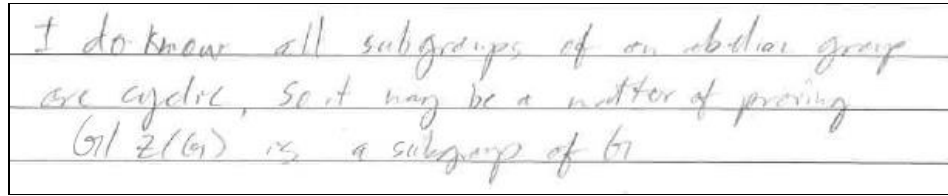 I do know all subgroups of an abelian group
are cyclic, so it may be a matter of proving
G/Z(G) is a subgroup of G